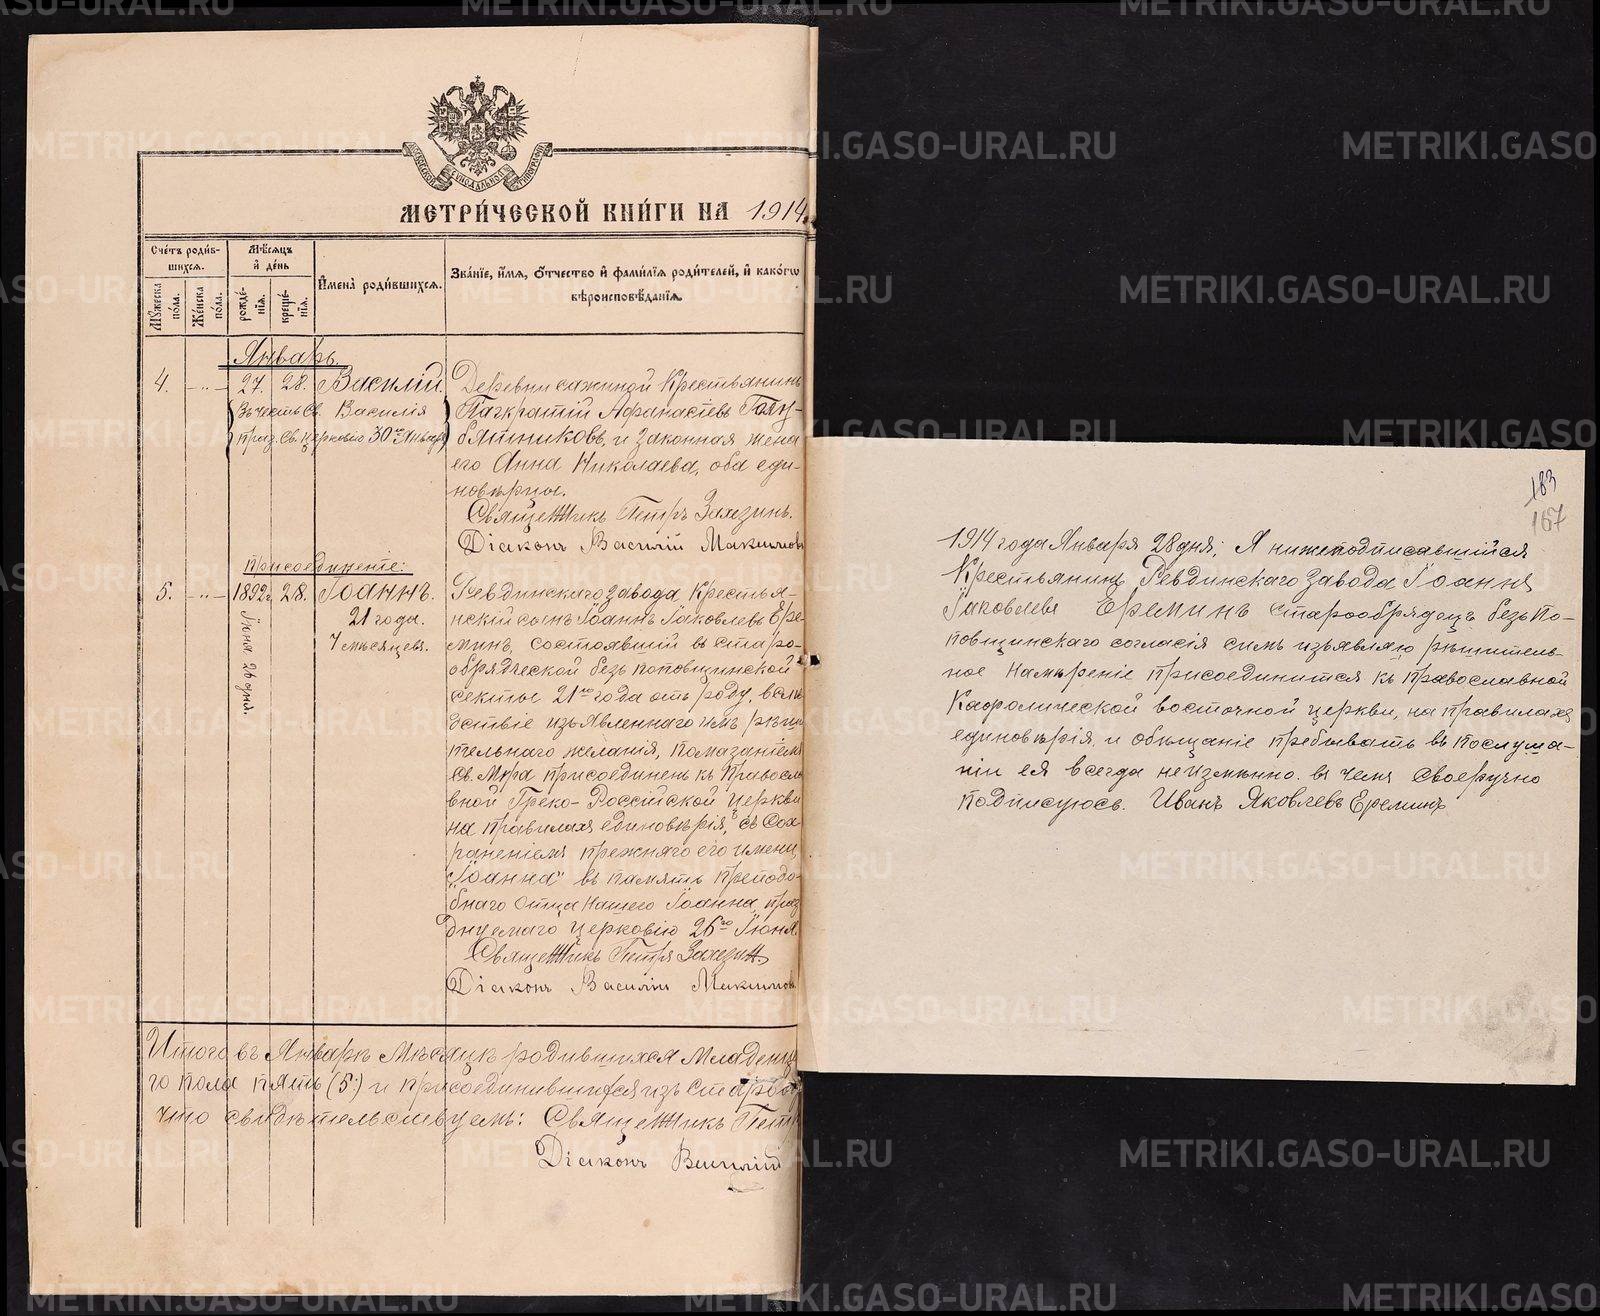 МЕТРИ́ЧЕСКОЙ КНИ́ГИ НА 1914
Сче́тъ роди́в-
шихся.
Мѣ́сяцъ
и де́нь
Имена̀ роди́вшихся.
Зва́нїе, и́мя, о́тчество и фами́лїя роди́телей, и како́гѡ
вѣроисповѣ́данїя.
Мꙋ́жеска
по́ла.
Же́нска
по́ла.
рожде́-
нїя.
креще́-
нїя.
Январь.
4. — „ — 27. 28. Василій.
Въ честь Св. Василія
праз. Св. церковію 30го Января
Деревни Сажиной Крестьянинъ
Панкратій Афанасіевъ
и законная жена
его Анна Николаева, оба еди-
новѣрцы.
Священникъ Петръ
Діаконъ Василій Макимовъ
Присоединеніе:
5. — „ — 1892г. 28. Іоаннъ.
Іюня 26 дня.
21 года.
7 мѣсяцевъ.
Ревдинскаго завода Крестья-
нскій сынъ Іоаннъ Іаковлевъ Ере-
минъ, состоявшій въ старо-
обрядческой безъ поповщинской
сектые 21го года отъ роду, вслѣ
дствіе изъявленнаго имъ рѣши
тельнаго желанія, помазаніемъ
Св. Мѵра присоединенъ къ Правосла
вной Греко-Россійской Церкви
на правилахъ единовѣрія, съ Сох-
раненіемъ прежняго его имени,
„Іоанна" въ память Преподо-
бнаго Отца Нашего Іоанна, праз
днуемаго Церковію 26го Іюня.
Священникъ Петръ
Діаконъ Василій Макимовъ
Итого въ Январѣ Мѣсяцѣ родившихся Младенц
го пола пять (5.) и присоединившійся изъ Старооб
что свидѣтельствуемъ: Священникъ Петр
Діаконъ Василій
183
167
1914 года Января 28 дня, Я нижеподписавшійся
Крестьянинъ Ревдинскаго завода Іоаннъ
Іаковлевъ Ереминъ старообрядецъ безъ по-
повщинскаго согласія симъ изъявляю рѣшитель-
ное намѣреніе присоединится къ православной
Каѳолической восточной церкви, на правилахъ
единовѣрія, и обѣщаніе пребывать въ послуша-
ніи ея всегда неизмѣнно. въ чемъ своеручно
подписуюсь. Иванъ Яковлевъ Ереминъ
METRIKI.GASO-URAL.RU